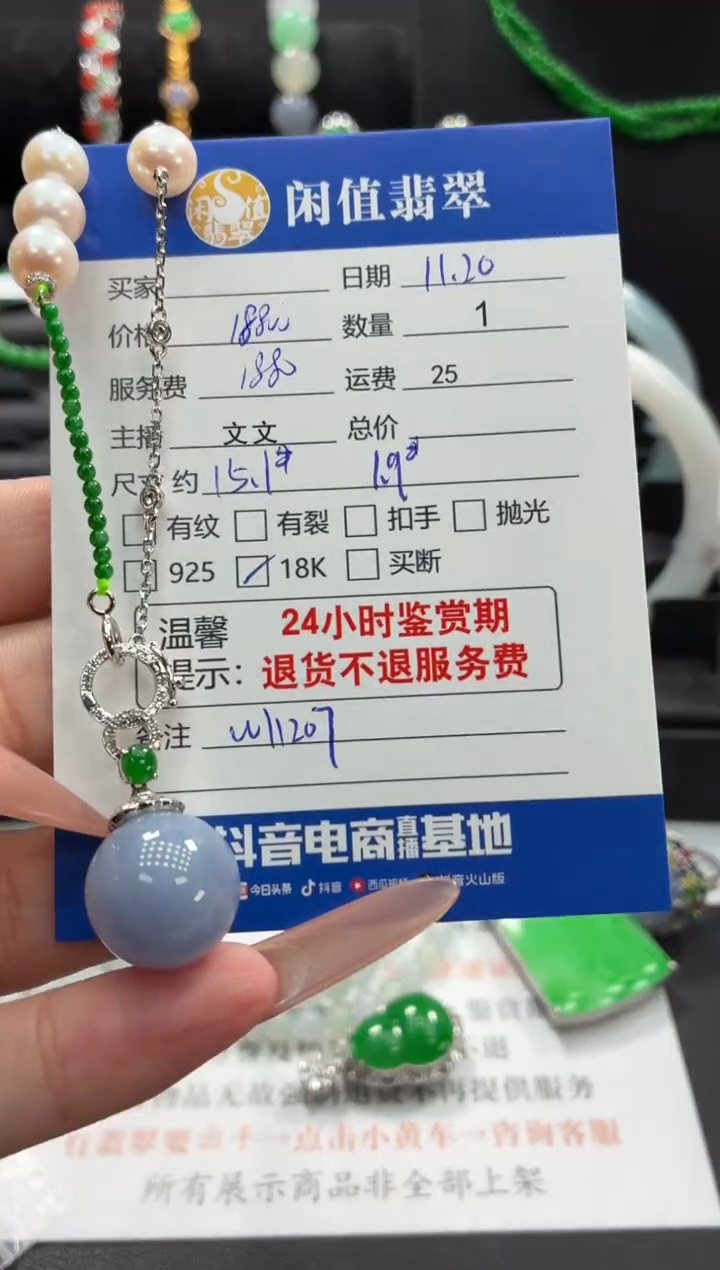 闲值翡翠
闲值翡翠
买家 日期 11.20
价格 18800 数量 1
服务费 1880 运费 25
主播 文文 总价
尺寸 约 15.1# 1.9#
有纹 有裂 扣手 抛光
925 18K 买断
温馨 24小时鉴赏期
提示: 退货不退服务费
备注 W11207
抖音电商直播基地
今日头条 抖音 西瓜视频 抖音火山版
不退
提供服务
一点击小黄车一咨询客服
所有展示商品非全部上架